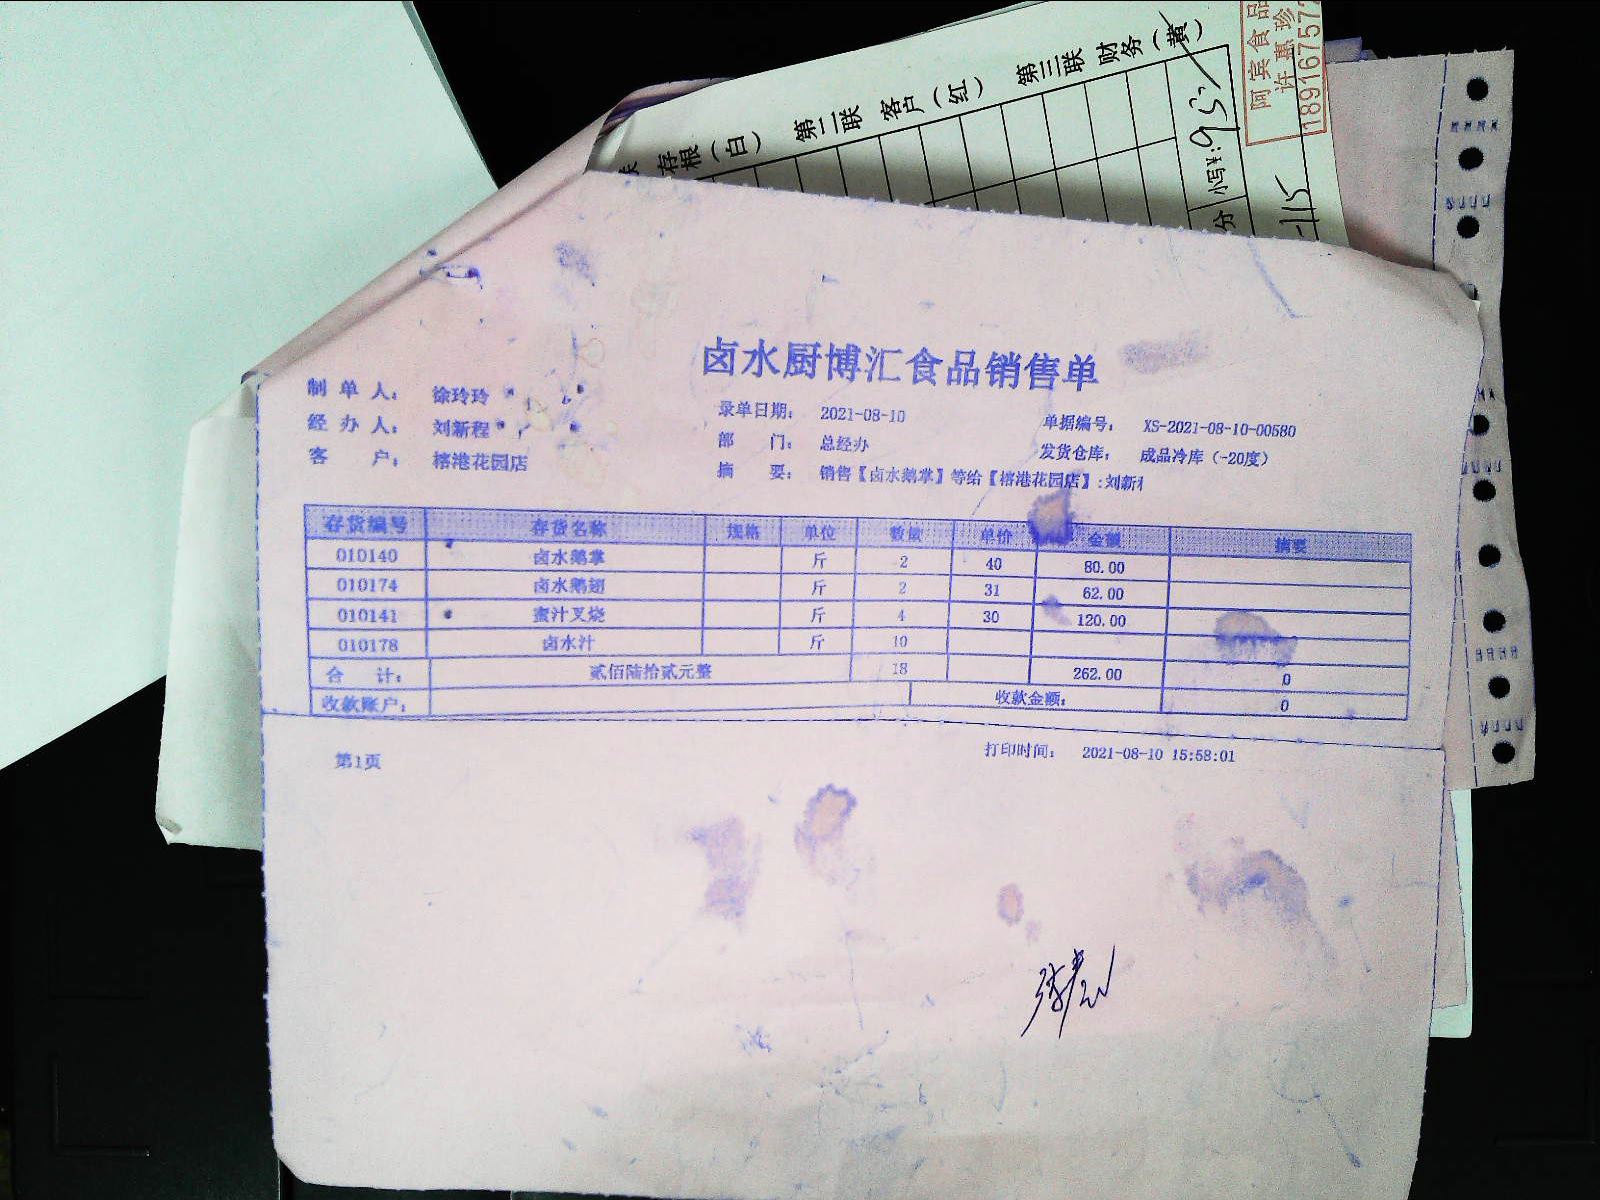 存根（白） 第二联 客户（红） 第三联 财务（黄）
小写¥:
分
-115
阿宾食品
许惠珍
1891675
卤水厨博汇食品销售单
制单人： 徐玲玲 录单日期： 2021-08-10 单据编号： XS-2021-08-10-00580
经办人： 刘新程 部门： 总经办 发货仓库： 成品冷库（-20度）
客户： 榕港花园店 摘要： 销售【卤水鹅掌】等给【榕港花园店】:刘新
存货编号 存货名称 规格 单位 数量 单价 金额 摘要
010140 卤水鹅掌 斤 2 40 80.00
010174 卤水鹅翅 斤 2 31 62.00
010141 蜜汁叉烧 斤 4 30 120.00
010178 卤水汁 斤 10
合计： 贰佰陆拾贰元整 18 262.00 0
收款账户： 收款金额： 0
第1页 打印时间： 2021-08-10 15:58:01